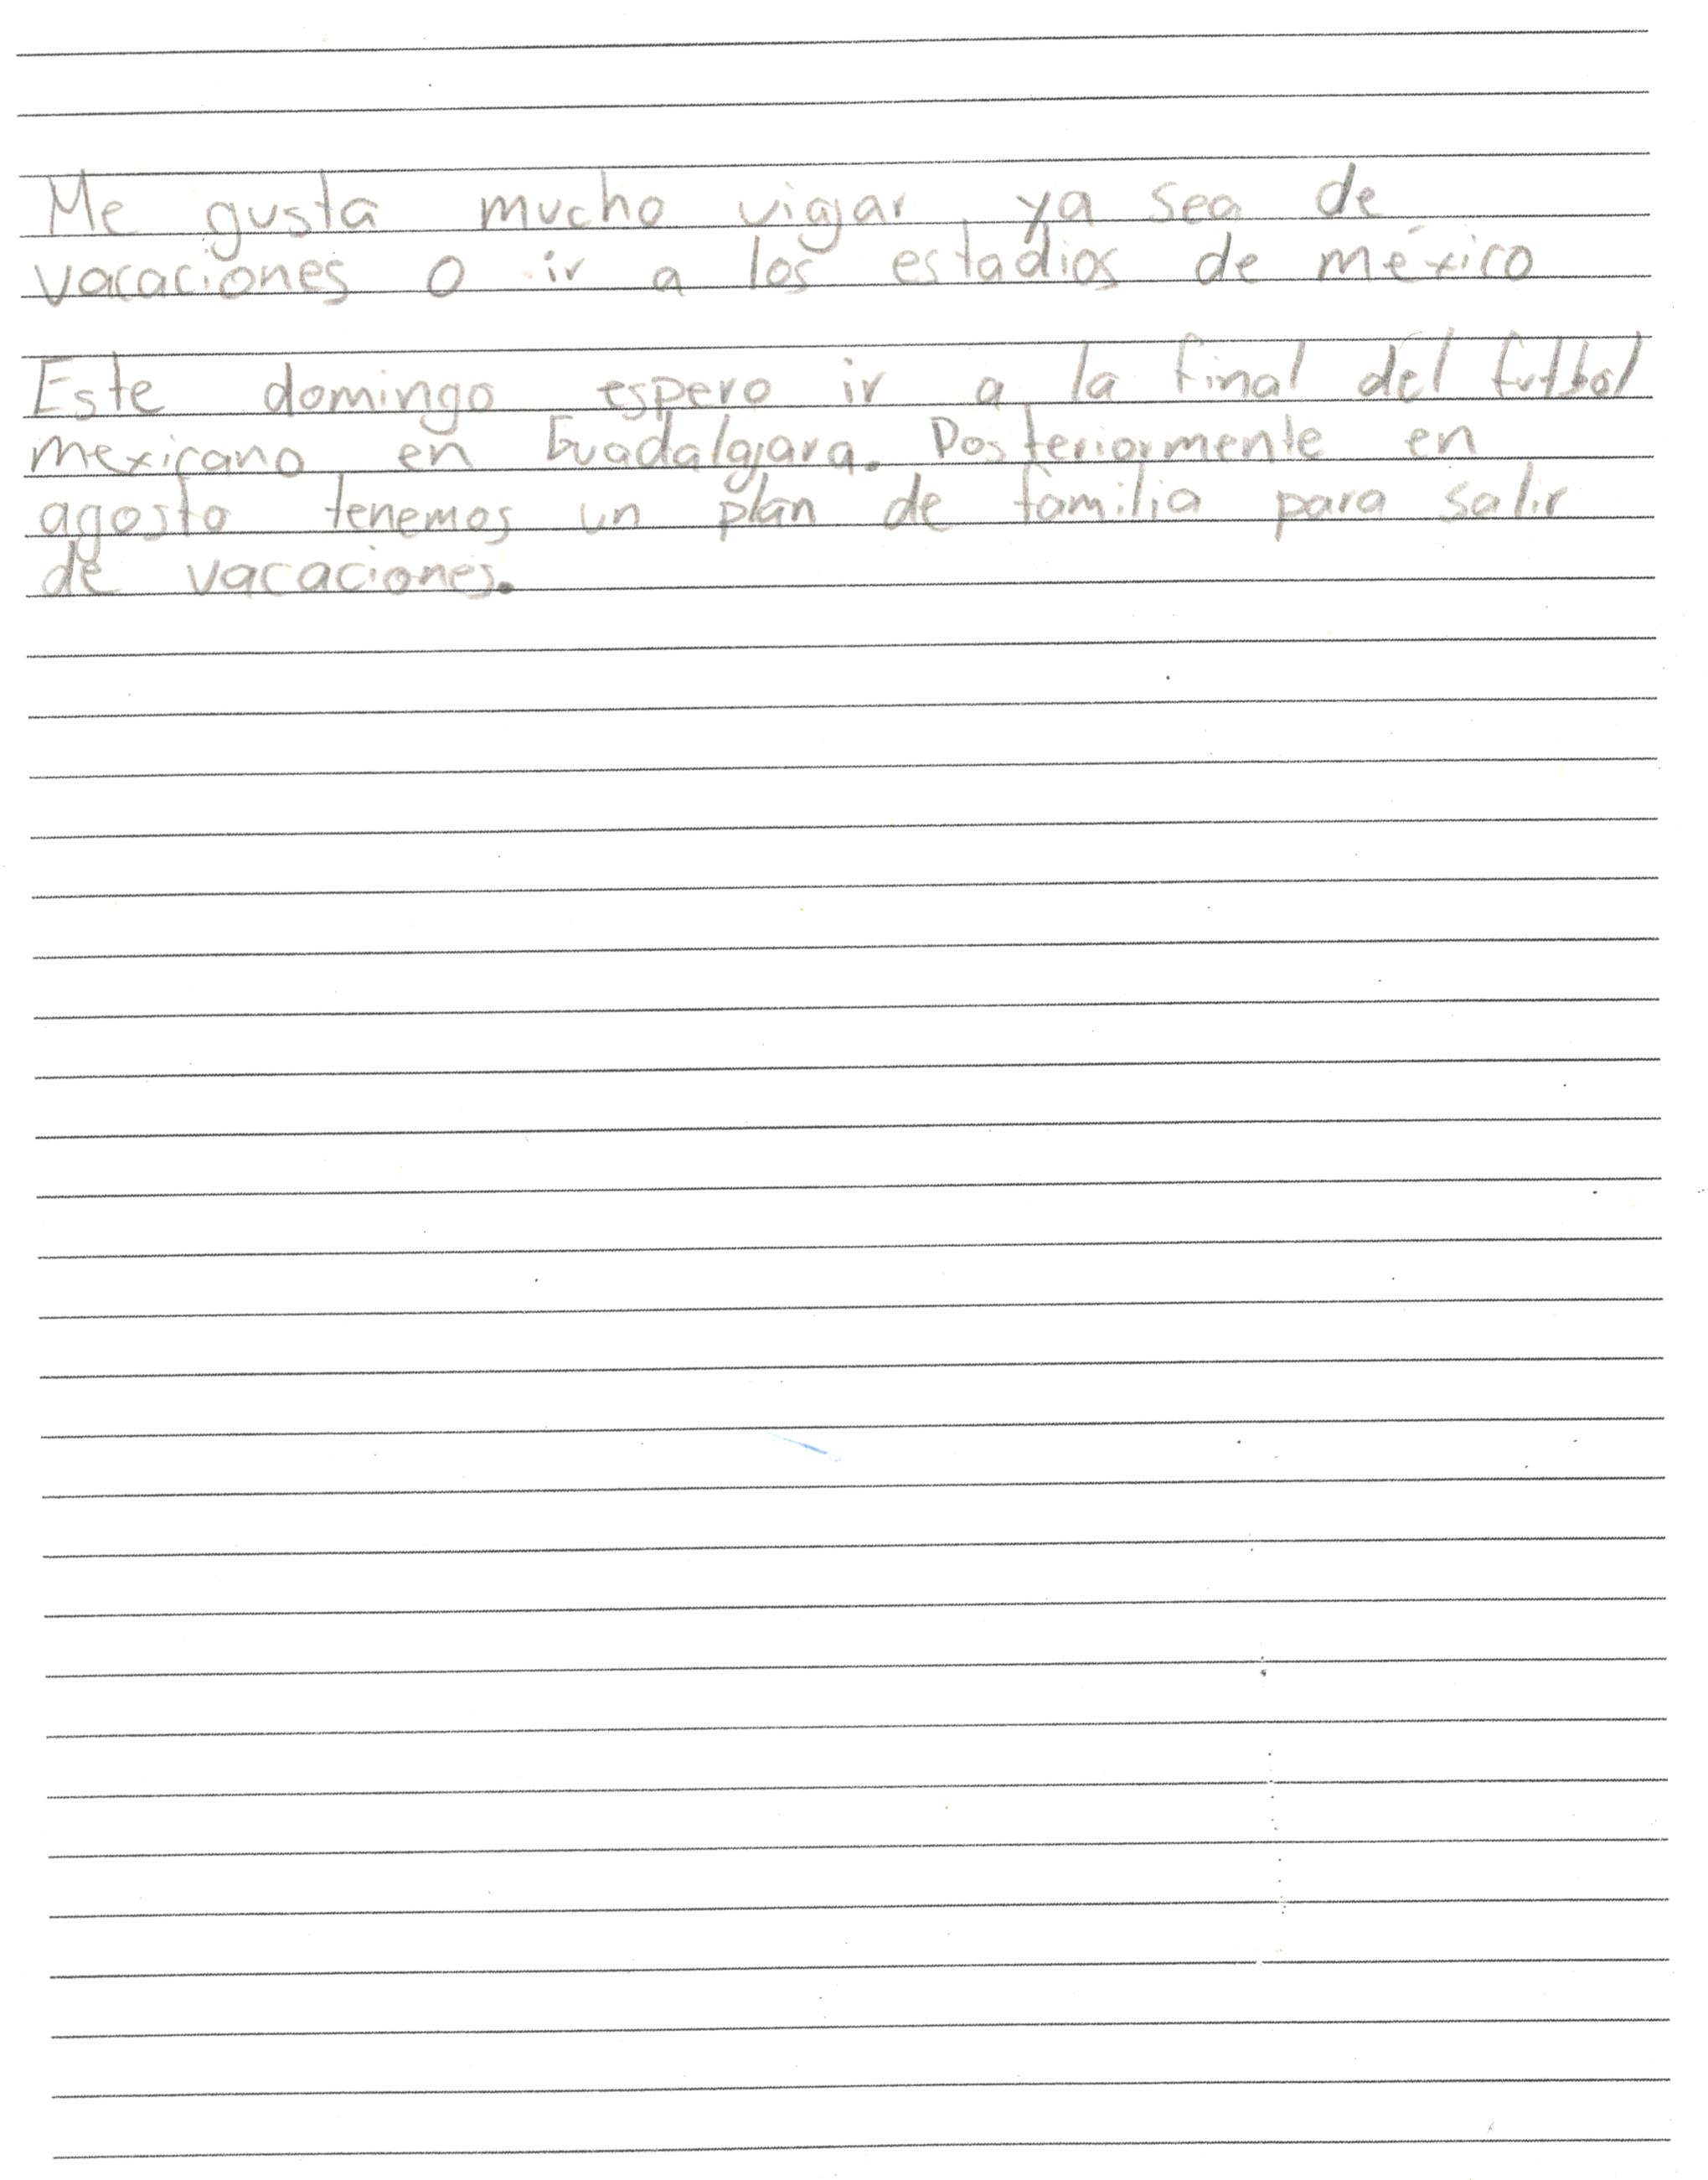 Me gusta mucho viajar, ya sea de
vacaciones o ir a los estadios de méxico
Este domingo espero ir a la final del futbol
mexicano en Guadalajara. Posteriormente en
agosto tenemos un plan de familia para salir
de vacaciones.